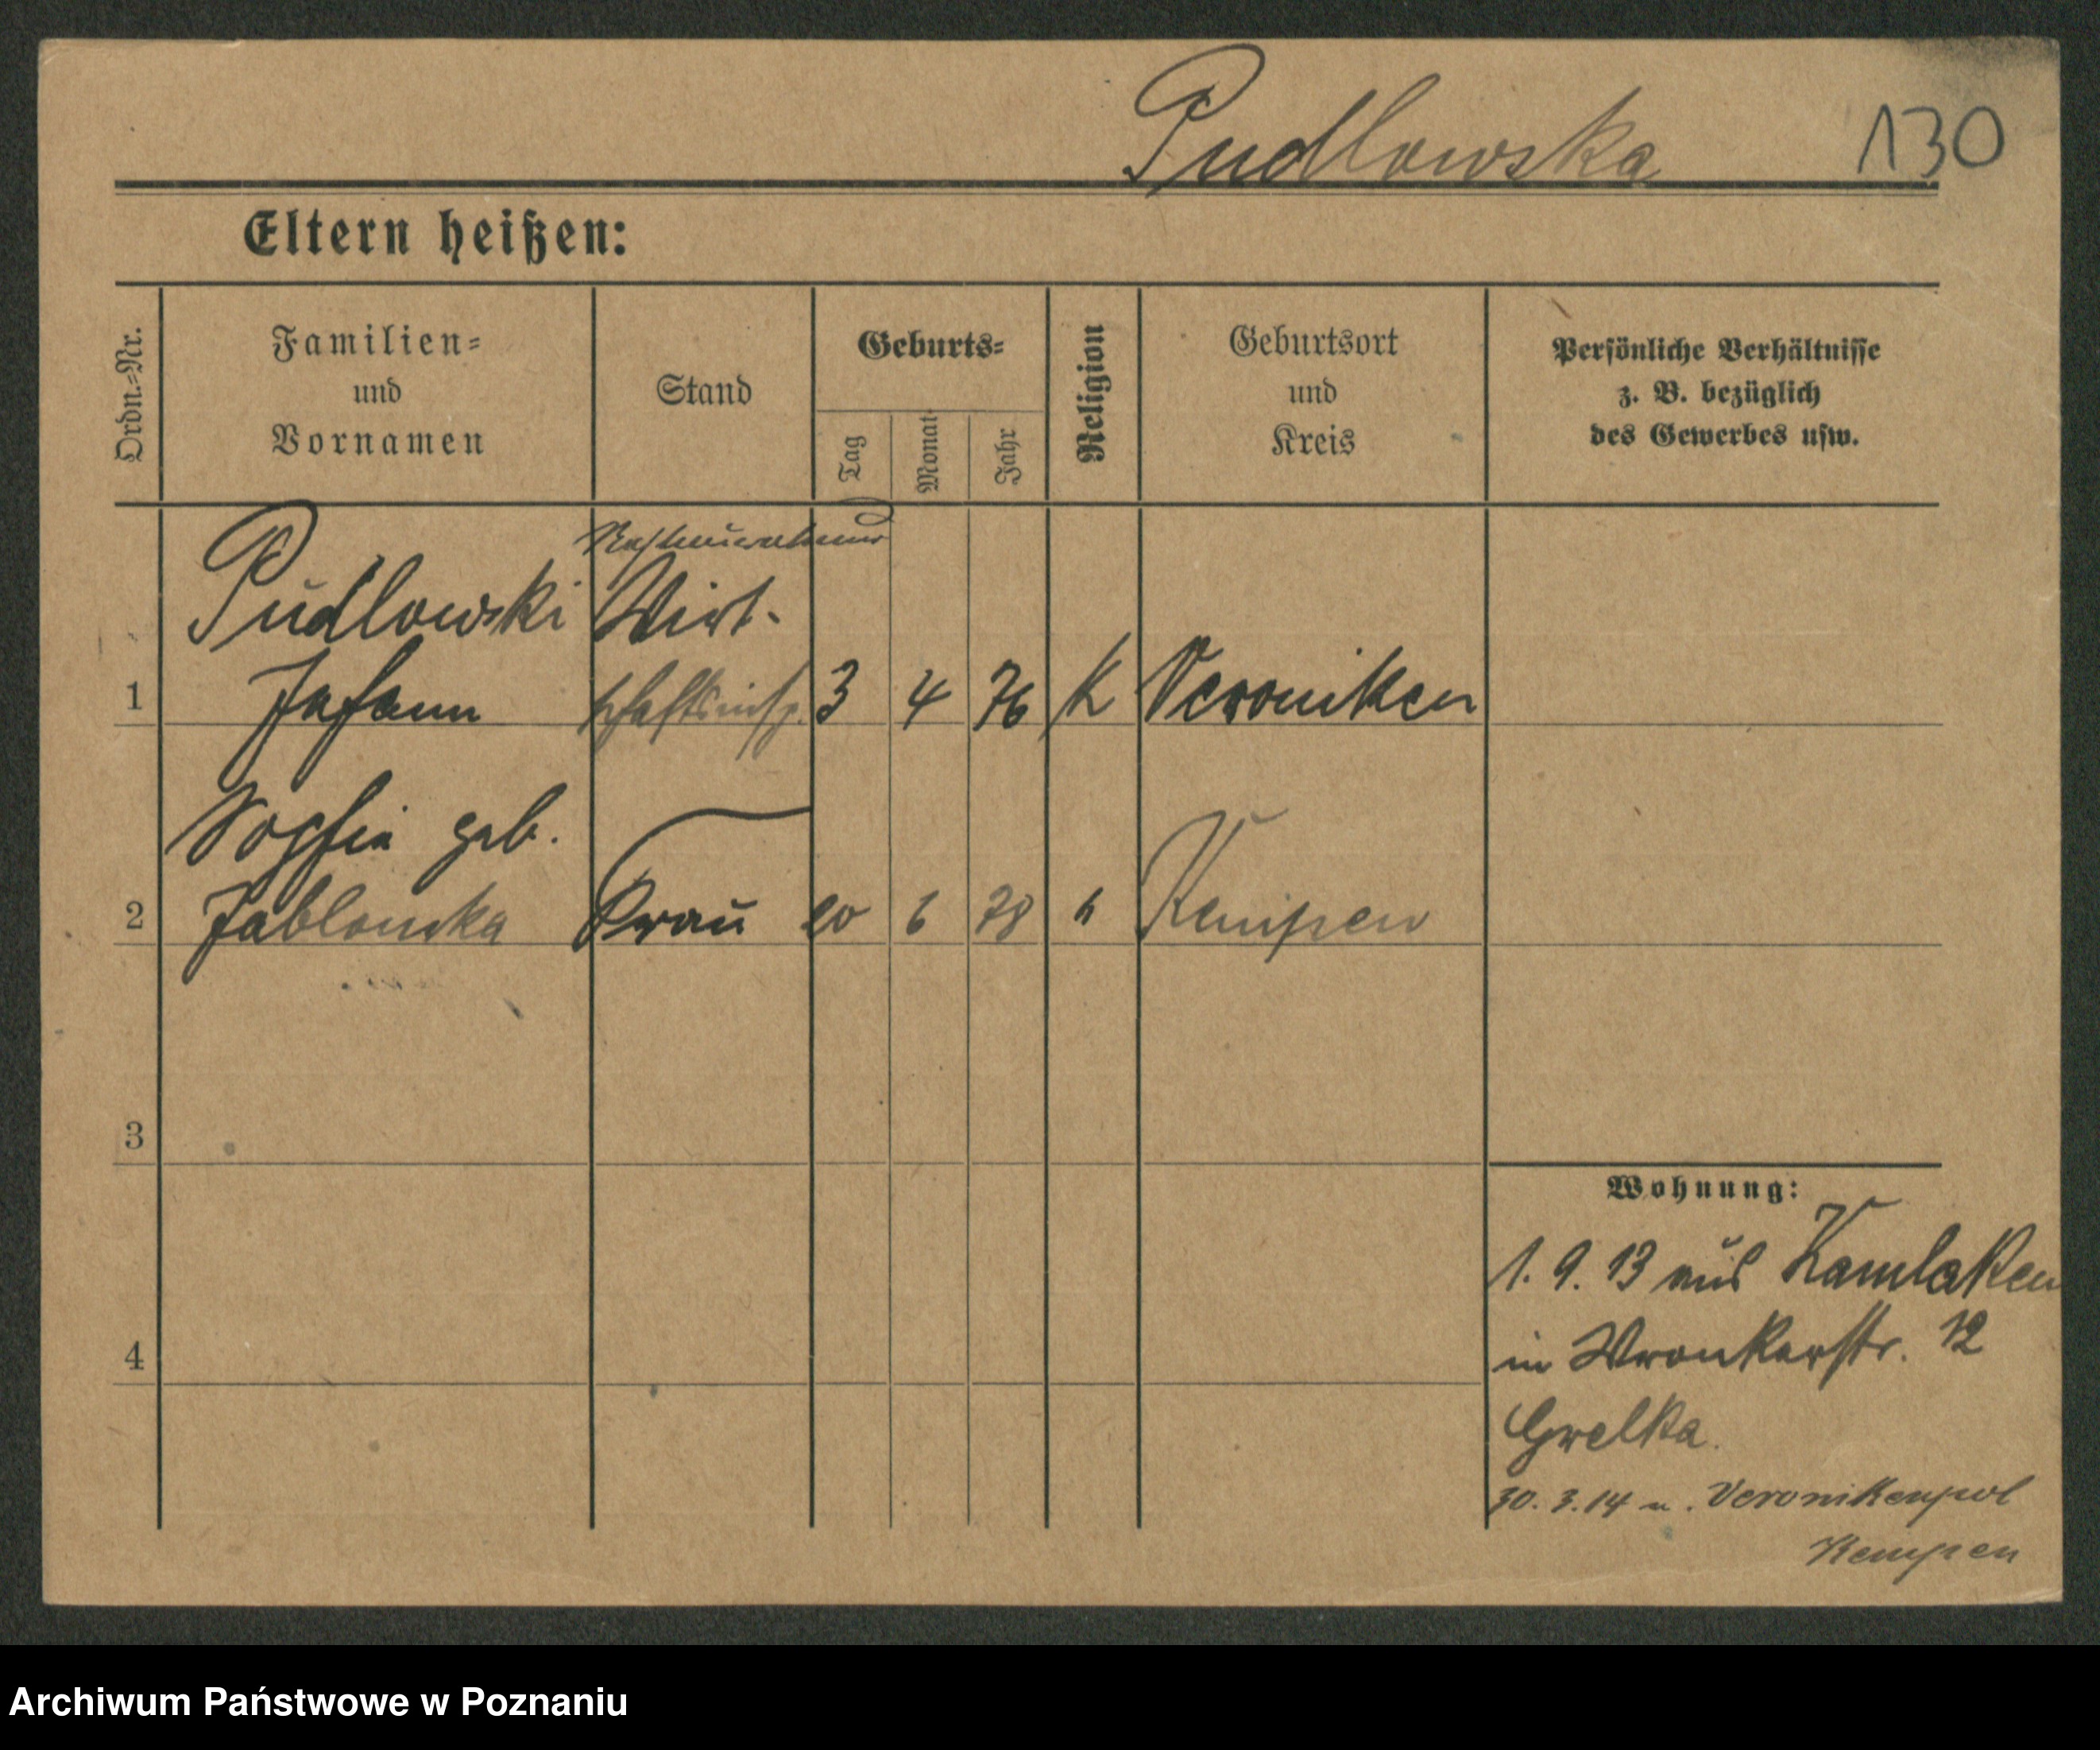 Pudlowska 130
Eltern heißen:
Ordn.=Nr.
Familien=
und
Vornamen
Stand
Geburts=
Tag
Monat
Jahr
Religion
Geburtsort
und
Kreis
Persönliche Verhältnisse
z. B. bezüglich
des Gewerbes usw.
Pudlowski Wirt-
1 Johann schaftsinsp. 3 4 76 K Veroniken
Sophia geb.
2 Jablonska Frau 20 6 78 k Kempen
3
4
Wohnung:
1. 9. 13 aus Kamlaken
in Wronkerstr. 12
Gwelka.
30. 3. 14 n. Veronikenpol
Kempen
Archiwum Państwowe w Poznaniu